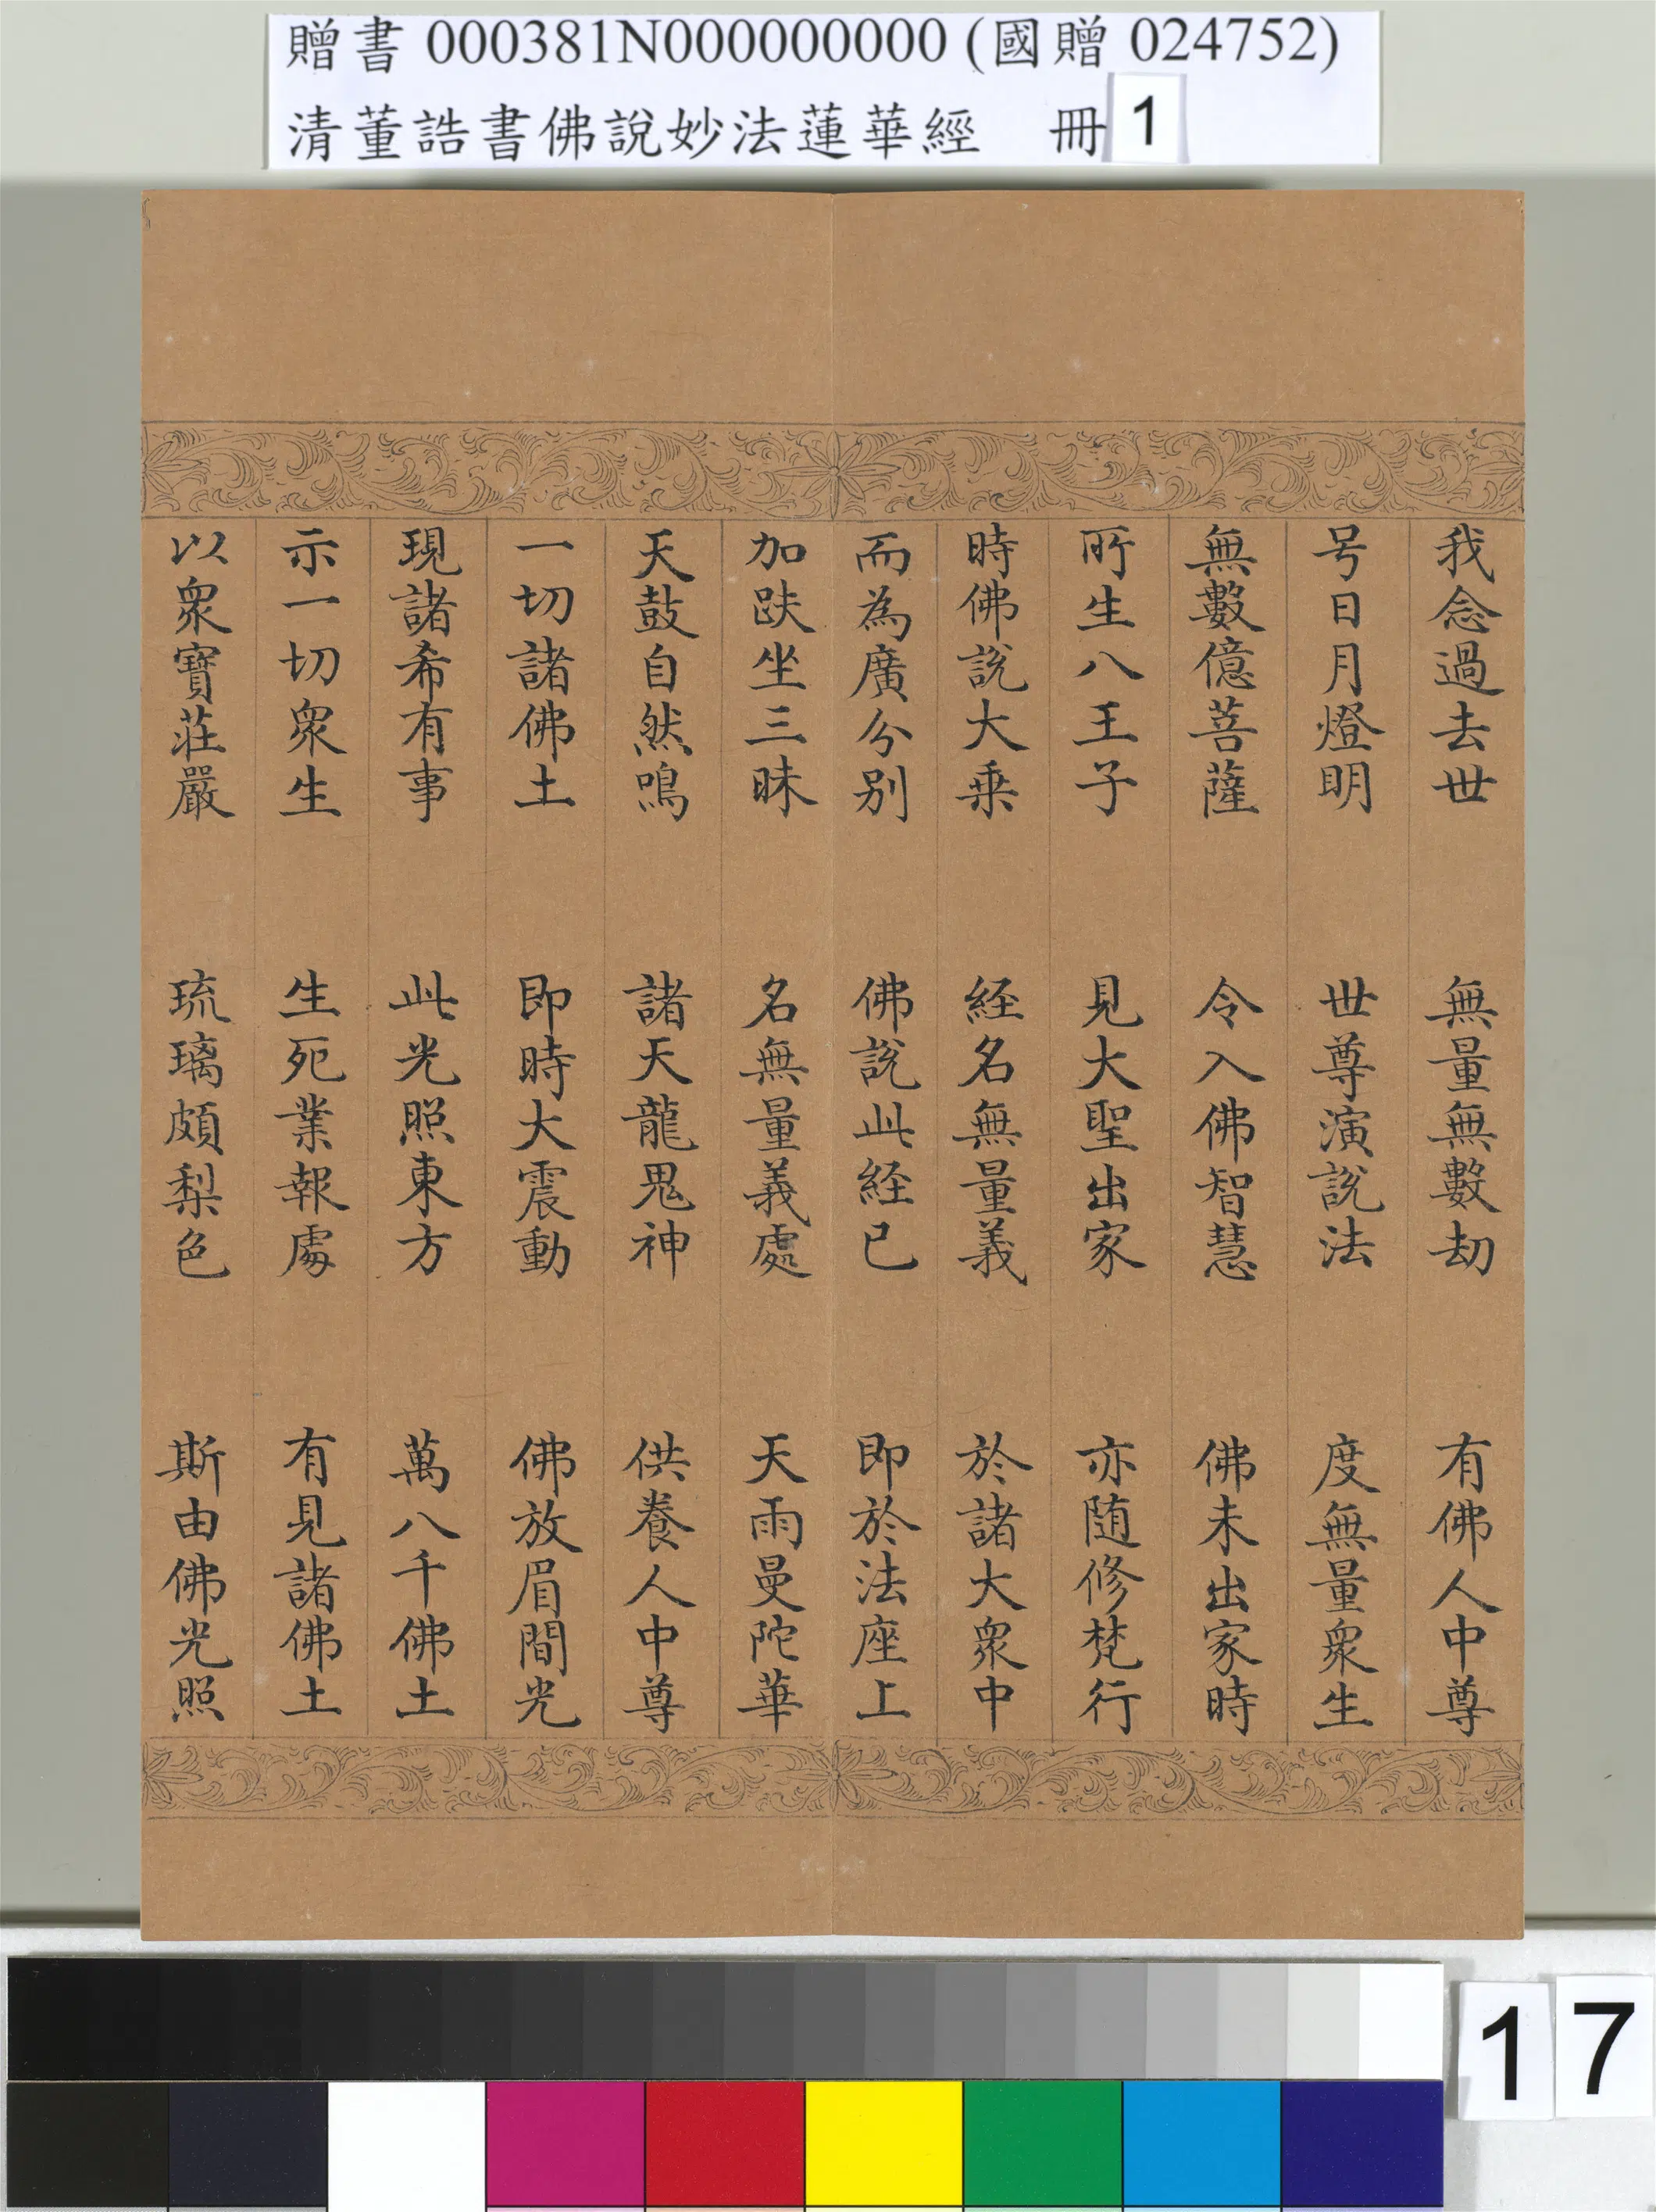 贈書 000381N000000000 (國贈 024752)
清董誥書佛說妙法蓮華經 冊 1
我念過去世 無量無數劫 有佛人中尊
号日月燈明 世尊演說法 度無量衆生
無數億菩薩 令入佛智慧 佛未出家時
所生八王子 見大聖出家 亦随修梵行
時佛說大乗 経名無量義 於諸大衆中
而為廣分别 佛說此経已 即於法座上
加趺坐三昧 名無量義處 天雨曼陀華
天鼓自然鳴 諸天龍鬼神 供養人中尊
一切諸佛土 即時大震動 佛放眉間光
現諸希有事 此光照東方 萬八千佛土
示一切衆生 生死業報處 有見諸佛土
以衆寶莊嚴 琉璃頗梨色 斯由佛光照
17